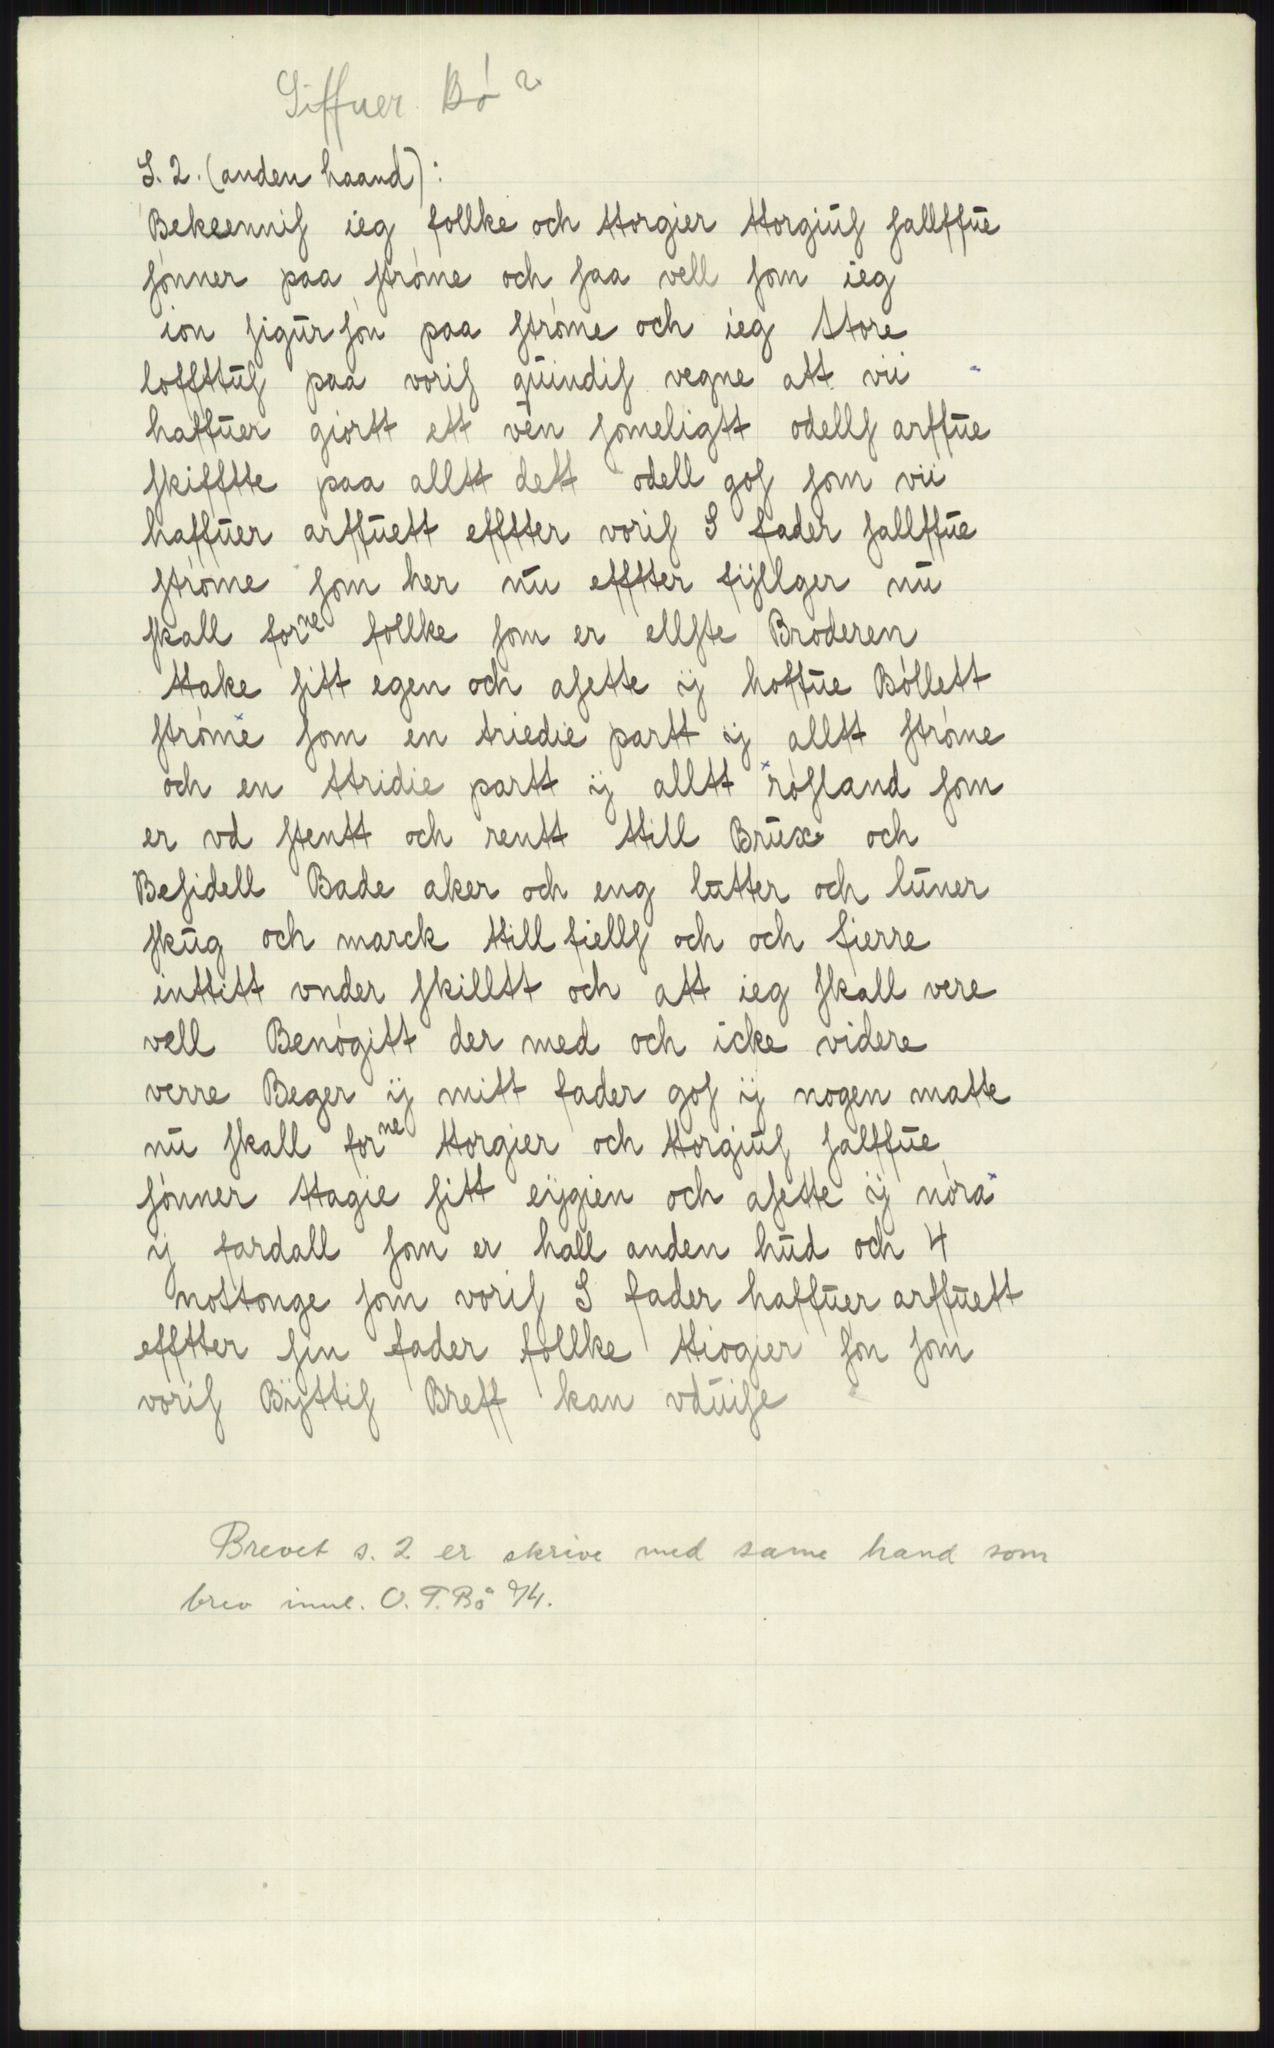 Siffuer Bó 2
S. 2. (anden haand):
Bekeennis ieg follke och ttorgier ttorgiuls sallffue
sónner paa stróme och saa vell som ieg
ion sigursón paa stróme och ieg store
loffttuls paa voris quindis vegne att vii
haffuer giortt ett ven someligtt odells arffue
skifftte paa alltt dett odell gos som vii
haffuer arffuett efftter voris S fader sallffue
stróme som her nu efftter fyllger nu
skall forne follke som er ellste Broderen
ttake sitt egen och asette ij hoffue Bóllett
stróme som en triedie partt ij alltt stróme
och en ttridie partt ij alltt rósland som
er vd stentt och rentt ttill Brux och
Besidell Bade aker och eng latter och luner
skug och marck ttill fiells och och fierre
inttitt vnder skilltt och att ieg skall vere
vell Benógitt der med och icke videre
verre Beger ij mitt fader gos ij nogen matte
nu skall forne ttorgier och ttorgiuls salffue
sónner ttagie sitt eijgien och asette ij nóra
ij fardall som er hall anden hud och 4
nottonge som voris S fader haffuer arffuett
efftter sin fader follke ttiogier són som
voris Bijttis Breff kan vduise
Brevet s. 2 er skrive med same hand som
brev innl. O. T. Bö 74.